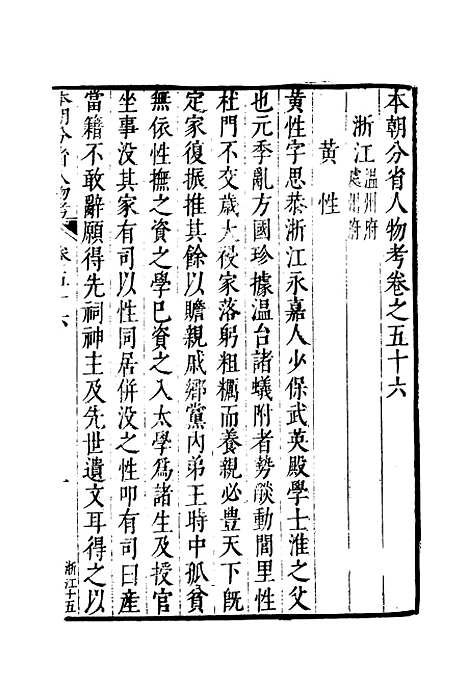 本朝分省人物考卷之五十六
浙江溫州府
處州府
黃性
黃性字思恭浙江永嘉人少保武英殿學士淮之父
也元季亂方國珍據溫台諸蟻附者勢燄動閭里性
杜門不交歲大祲家落躬粗糲而養親必豊天下既
定家復振推其餘以贍親戚鄉黨内弟王時中孤貧
無依性撫之資之學巳資之入太學爲諸生及授官
坐事没其家有司以性同居併没之性叩有司曰産
當籍不敢辭願得先祠神主及先世遺文耳得之以
本朝分省人物考
卷五十六
一
浙江十五